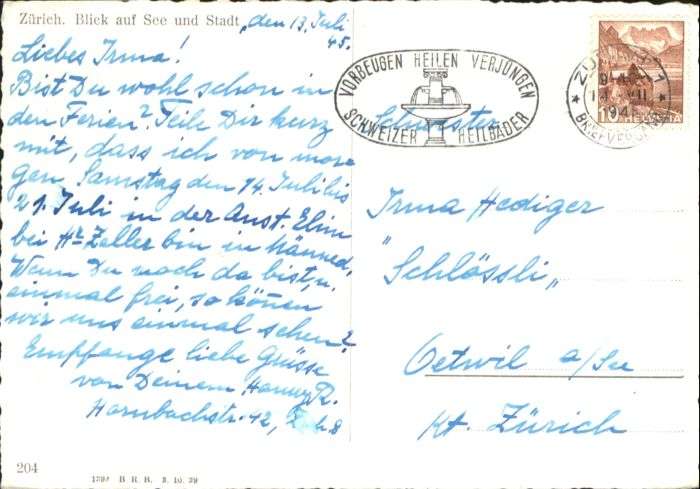 Zürich. Blick auf See und Stadt
den 13. Juli
45.
Liebes Irma!
Bist Du wohl schon in
den Ferien? Teile Dir kurz
mit, dass ich von mor
gen, Samstag den 14. Juli bis
21. Juli in der Anst. Elim
bei Hr. Zeller bin in Männed.
Wenn Du noch da bist, u.
einmal frei, so können
wir uns einmal sehen?
Empfange liebe Grüsse
von Deinem Hanny R.
Hornbachstr. 42, Zch. 8
204
B R B. 3. 10. 39
VORBEUGEN HEILEN VERJÜNGEN
SCHWEIZER HEILBÄDER
HELVETIA
Schwester
Irma Hediger
"Schlössli"
Oetwil a/See
Kt. Zürich